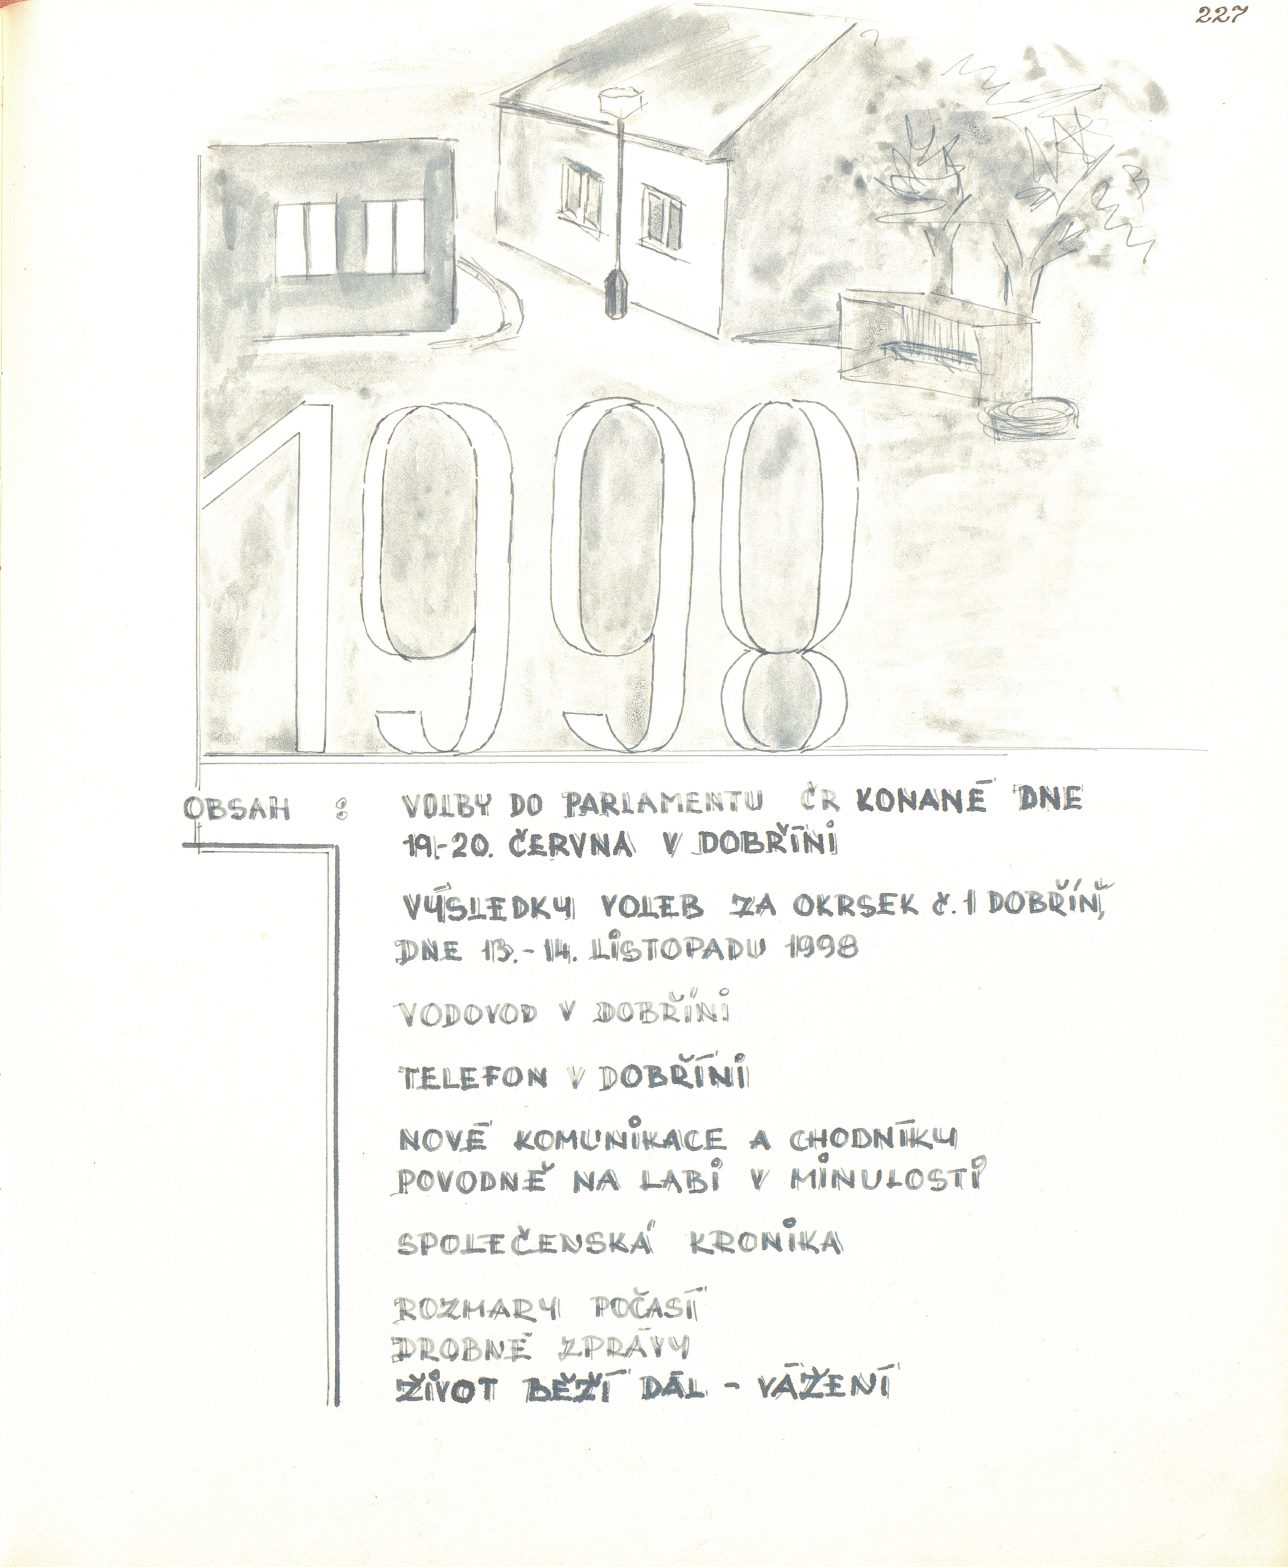 227
1998
OBSAH : VOLBY DO PARLAMENTU ČR KONANÉ DNE
19.-20. ČERVNA V DOBŘÍNI
VÝSLEDKY VOLEB ZA OKRSEK Č. 1 DOBŘÍŇ,
DNE 13.-14. LISTOPADU 1998
VODOVOD V DOBŘÍNI
TELEFON V DOBŘÍNI
NOVÉ KOMUNIKACE A CHODNÍKY
POVODNĚ NA LABI V MINULOSTI
SPOLEČENSKÁ KRONIKA
ROZMARY POČASÍ
DROBNÉ ZPRÁVY
ŽIVOT BĚŽÍ DÁL - VÁŽENÍ